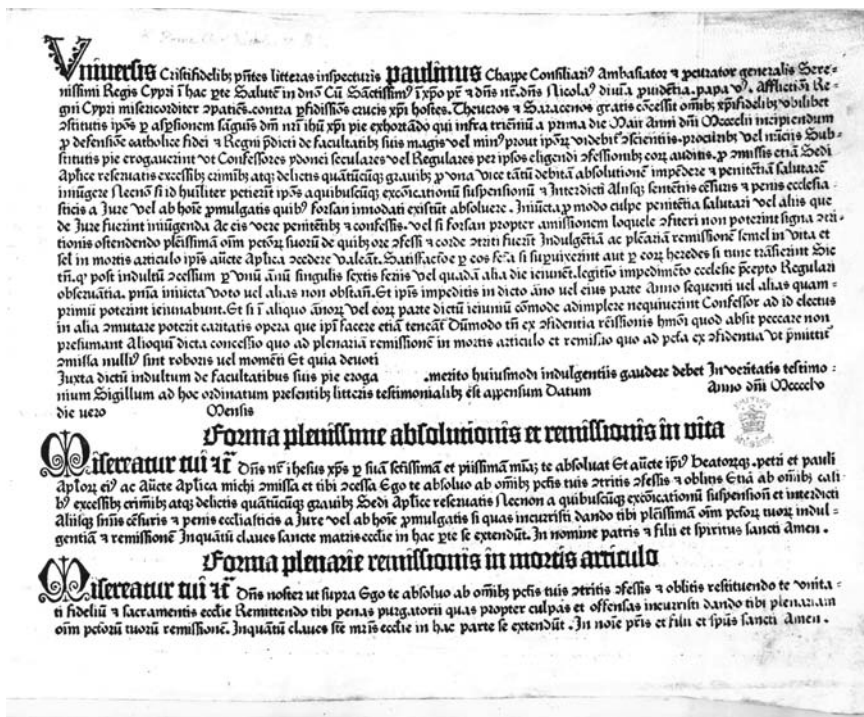 Vniuersis Cristifidelibꝫ pñtes litteras inspecturis Paulinus Chappe Consiliariꝰ Ambasiator ⁊ ꝓcurator generalis Sere⸗
nissimi Regis Cypri ĩ hac ꝑte Salutẽ in dño Cũ Sãctissimꝰ ĩ xp̃o pr̃ ⁊ dñs nr̃. dñs Nicolaꝰ diuĩa ꝓuidẽtia. papa vꝰ. Afflictiõi Re⸗
gni Cypri misericorditer ꝯpatiẽs. contra ꝑfidissiõs crucis xp̃i hostes. Theucros ⁊ Saracenos gratis cõcessit omĩbꝫ xp̃ifidelibꝫ vbilibet
ꝯstitutis ip̃os ꝑ aspsionem sãguĩs dñi nr̃i ihũ xp̃i pie exhortãdo qui infra trieñiũ a prima die Maii Anni dñi Mcccclii incipiendum
ꝓ defensiõe catholice fidei ⁊ Regni p̃dicti de facultatibꝫ suis magis vel minꝰ prout ip̃oꝝ videbit᷑ ꝯscientiis. procũribꝫ vel nũciis Sub⸗
stitutis pie erogauerint vt Confessores ydonei seculares vel Regulares per ipsos eligendi ꝯfessionibꝫ eoꝝ auditis. ꝓ ꝯmissis etiã Sedi
Aplice reseruatis excessibꝫ criminibꝫ atqꝫ delictis quãtũcũqꝫ grauibꝫ ꝓ vna vice tãtũ debitã absolutionẽ impẽdere ⁊ penitẽtiã salutarẽ
iniũgere Necnõ si id huiliter petierĩt ip̃os a quibuscũqꝫ excõicationũ suspensionũ ⁊ Interdicti Aliisqꝫ sentẽtiis cẽsuris ⁊ penis ecclesia
sticis a Jure vel ab hoĩe ꝓmulgatis quibꝰ forsan innodati existũt absoluere. Iniũcta ꝓ modo culpe penitẽtia salutari vel aliis que
de Jure fuerint iniũgenda Ac eis vere penitẽtibꝫ ⁊ confessis. vel si forsan propter amissionem loquele ꝯfiteri non poterint signa ꝯtri⸗
tionis ostendendo pleĩssimã oĩm pctõꝝ suoꝝ de quibꝫ ore ꝯfessi ⁊ corde ꝯtriti fuerĩt Indulgẽtiã ac pleãriã remissionẽ semel in vita et
sel in mortis articulo ip̃is aũcte Aplica ꝯcedere valeãt. Satisfactõe ꝑ eos fcã si supuixerint aut ꝑ eoꝝ heredes si tunc trãsierint Sic
tñ. qꝫ post indultũ ꝯcessum ꝑ vnũ ãnũ singulis sextis feriis vel quadã alia die ieiunẽt. legitĩo impedimẽto ecclesie p̃cepto Regulari
obseruãtia. pñĩa iniũcta voto uel alias non obstañ. Et ip̃is impeditis in dicto ãno vel eius parte Anno sequenti uel alias quam⸗
primũ poterint ieiunabunt. Et si ĩ aliquo ãnoꝝ vel eoꝝ parte dictũ ieiuniũ cõmode adimplere nequiuerint Confessor ad id electus
in alia ꝯmutare poterit caritatis opera que ip̃i facere etiã teneãt᷑ Dũmodo tñ ex ꝯfidentia rẽissionis hmõi quod absit peccare non
presumant Alioqui dicta concessio quo ad plenariã remissionẽ in mortis articulo et remissio quo ad pctã ex ꝯfidentia vt p̃mittit᷑
ꝯmissa nulliꝰ sint roboris uel momẽti Et quia deuoti
Juxta dictũ indultum de facultatibus suis pie eroga .merito huiusmodi indulgentiis gaudere debet In veritatis testimo ⸗
nium Sigillum ad hoc ordinatum presentibꝫ litteris testimonialibꝫ ẽst appensum Datum Anno dñi Mcccclv
die uero Mensis
Forma plenissime absolutionis et remissionis in vita
Misereatur tui ⁊c̃ Dñs nr̃ ihesus xp̃s ꝑ suã sctĩssimã et piissimã mĩaꝫ te absoluat Et aũcte ip̃iꝰ beatorꝫqꝫ. petri et pauli
Apl̃oꝝ eiꝰ ac Aucte Aplica michi ꝯmissa et tibi ꝯcessa Ego te absoluo ab omĩbꝫ pctĩs tuis ꝯtritis ꝯfessis ⁊ oblitis Etiã ab omĩbꝫ casi⸗
bꝰ excessibꝫ crimĩbꝫ atqꝫ delictis quãtũcũqꝫ grauibꝫ Sedi Aplice reseruatis Necnon a quibuscũqꝫ excõicationũ suspensionũ et interdicti
Aliisqꝫ sñiis cẽsuris ⁊ penis eccl̃iasticis a Jure vel ab hoĩe ꝓmulgatis si quas incurristi dando tibi pleĩssimã oĩm pctõꝝ tuoꝝ indul⸗
gentiã ⁊ remissionẽ Inquãtũ claues sancte matris eccl̃ie in hac ꝑte se extendũt. In nomine patris ⁊ filii et spiritus sancti Amen.
Forma plenarie remissionis in mortis articulo
Misereatur tui ⁊c̃ Dñs noster ut supra Ego te absoluo ab omĩbꝫ pctĩs tuis ꝯtritis ꝯfessis ⁊ oblitis restituendo te vnita⸗
ti fideliũ ⁊ sacramentis eccl̃ie Remittendo tibi penas purgatorii quas propter culpas et offensas incurristi dando tibi plenariam
oĩm pctõꝝ tuoꝝ remissionẽ. Inquãtũ claues st̃e mr̃is eccl̃ie in hac parte se extendũt. In noĩe pr̃is et filii et sp̃us sancti Amen.